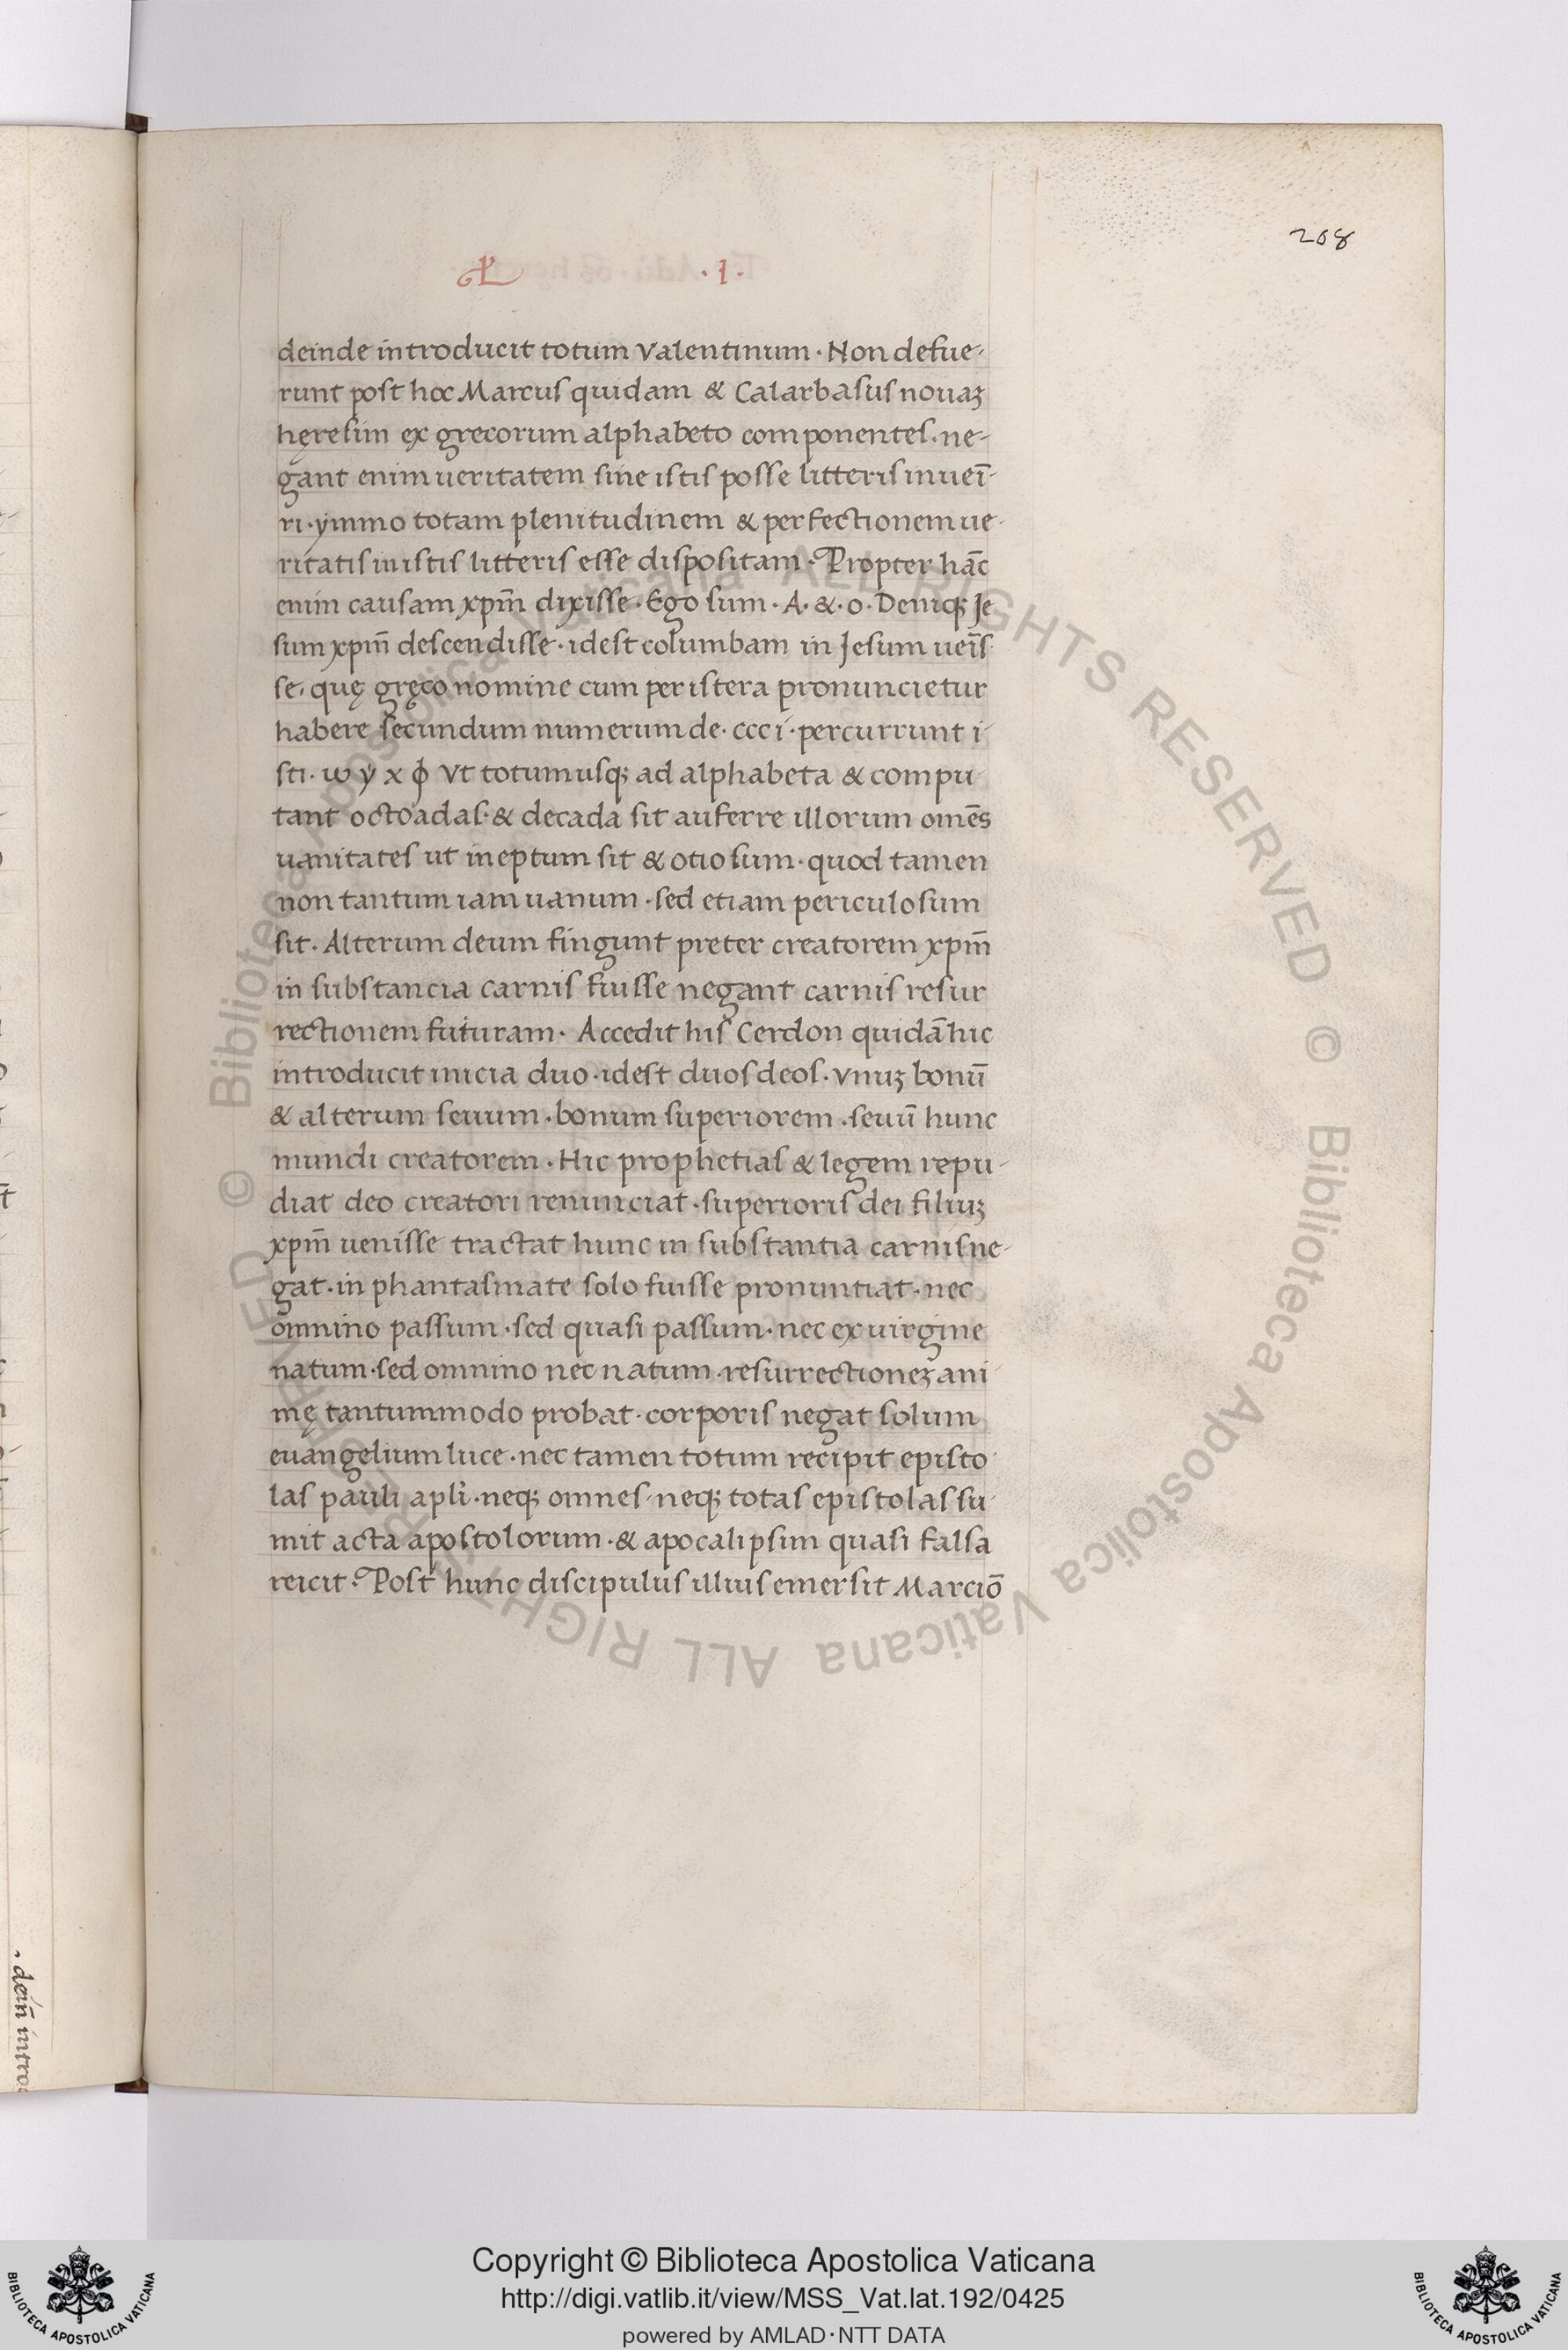 208
L · I ·
deinde introducit totum Valentinum · Non defue-
runt post hoc Marcus quidam & Calarbasus nouaꝫ
hęresim ex grecorum alphabeto componentes. ne-
gant enim ueritatem sine istis posse litteris inueī-
ri · ymmo totam plenitudinem & perfectionem ue-
ritatis in istis litteris esse dispositam · Propter hāc
enim causam xp̄m dixisse · Ego sum · A · & · o · Deniqꝫ Je
sum xp̄m descendisse · idest columbam in Jesum ueīs
se. quę gręco nomine cum peristera pronuncietur
habere secundum numerum de · ccc i · percurrunt i-
sti · ω ψ x ϕ Vt totum usqꝫ ad alphabeta & compu
tant octoadas · & decada sit auferre illorum omēs
uanitates ut ineptum sit & otiosum · quod tamen
non tantum iam uanum · sed etiam periculosum
sit · Alterum deum fingunt preter creatorem xp̄m
in substancia carnis fuisse negant carnis resur
rectionem futuram · Accedit his Cerdon quidā hic
introducit inicia duo · idest duos deos · vnuꝫ bonū
& alterum seuum · bonum superiorem · seuū hunc
mundi creatorem · Hic prophetias & legem repu-
diat deo creatori renunciat · superioris dei filiuꝫ
xp̄m uenisse tractat hunc in substantia carnis ne-
gat · in phantasmate solo fuisse pronuntiat · nec
omnino passum · sed quasi passum · nec ex uirgine
natum · sed omnino nec natum · resurrectioneꝫ ani
mę tantummodo probat · corporis negat solum
euangelium luce · nec tamen totum recipit episto
las pauli apl̄i · neqꝫ omnes · neqꝫ totas epistolas su
mit acta apostolorum · & apocalipsim quasi falsa
reicit · Post hunc discipulus illius emersit Marciō
. dein̄ intro
© Biblioteca Apostolica Vaticana ALL RIGHTS RESERVED © Biblioteca Apostolica Vaticana ALL RIGHTS RESERVED
BIBLIOTECA APOSTOLICA VATICANA
Copyright © Biblioteca Apostolica Vaticana
http://digi.vatlib.it/view/MSS_Vat.lat.192/0425
powered by AMLAD·NTT DATA
BIBLIOTECA APOSTOLICA VATICANA